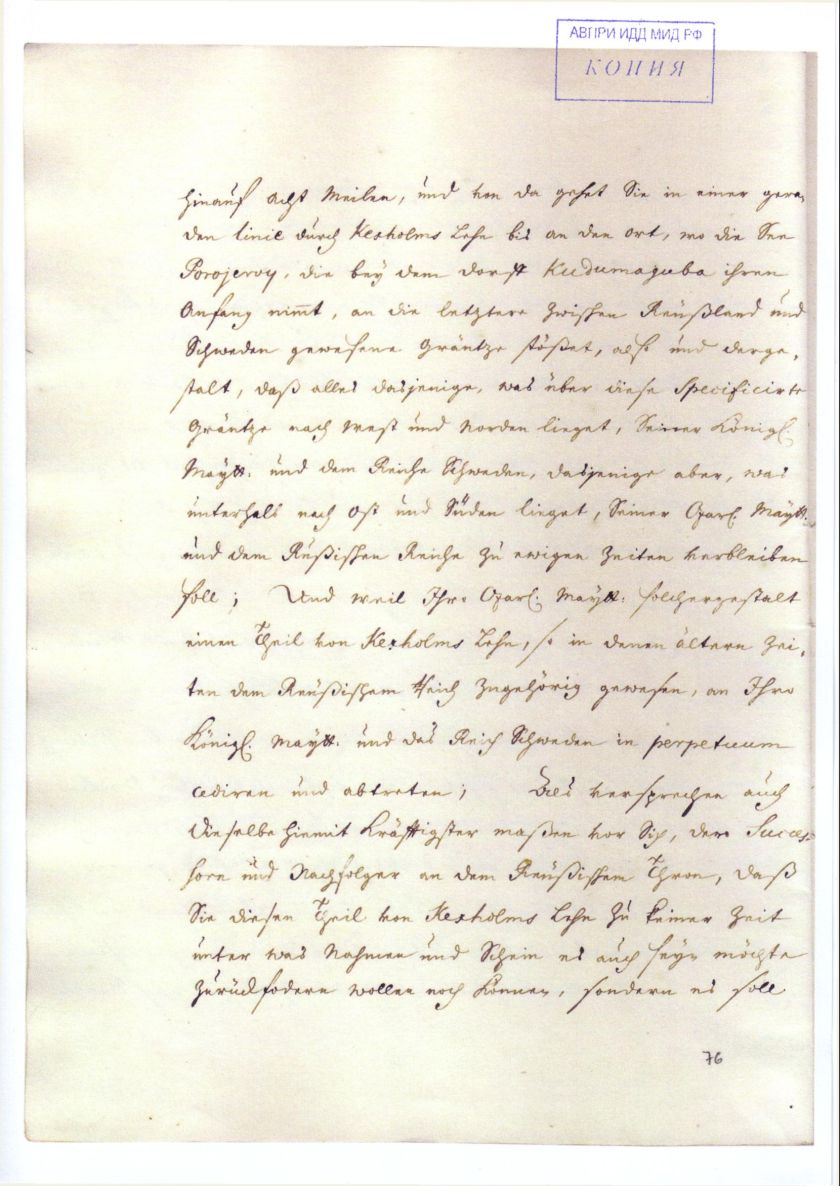 АВПРИ ИДД МИД РФ
КОПИЯ
hinauf acht Meilen, und von da gehet Sie in einer gera-
den linie durch Kexholms Lehn bis an den ort, wo die See
Porojeroy, die bey dem dorff Kudumaguba ihren
Anfang nimt, an die letztere zwischen Reußland und
Schweden gewesene Gräntze stößet, also und derge-
stalt, daß alles dasjenige, was über diese Specificirte
Gräntze nach West und Norden lieget, Seiner Königl.
Maytt. und dem Reiche Schweden, dasjenige aber, was
unterhalb nach Ost und Süden lieget, Seiner Czarl. Maytt.
und dem Reußischen Reiche zu ewigen Zeiten verbleiben
soll; Und weil Ihro Czarl. Maytt. solchergestalt
einen Theil von Kexholms Lehn, so in denen ältern Zei-
ten dem Reußischem Reich zugehörig gewesen, an Ihro
Königl. Maytt. und das Reich Schweden in perpetuum
cediren und abtreten; Als versprechen auch
Dieselbe hiemit kräfftigster maßen vor Sich, dero Succes-
sorn und Nachfolger an dem Reußischem Thron, daß
Sie diesen Theil von Kexholms Lehn zu keiner Zeit
unter was Nahmen und Schein es auch seyn möchte
zurückfodern wollen noch können, sondern es soll
76